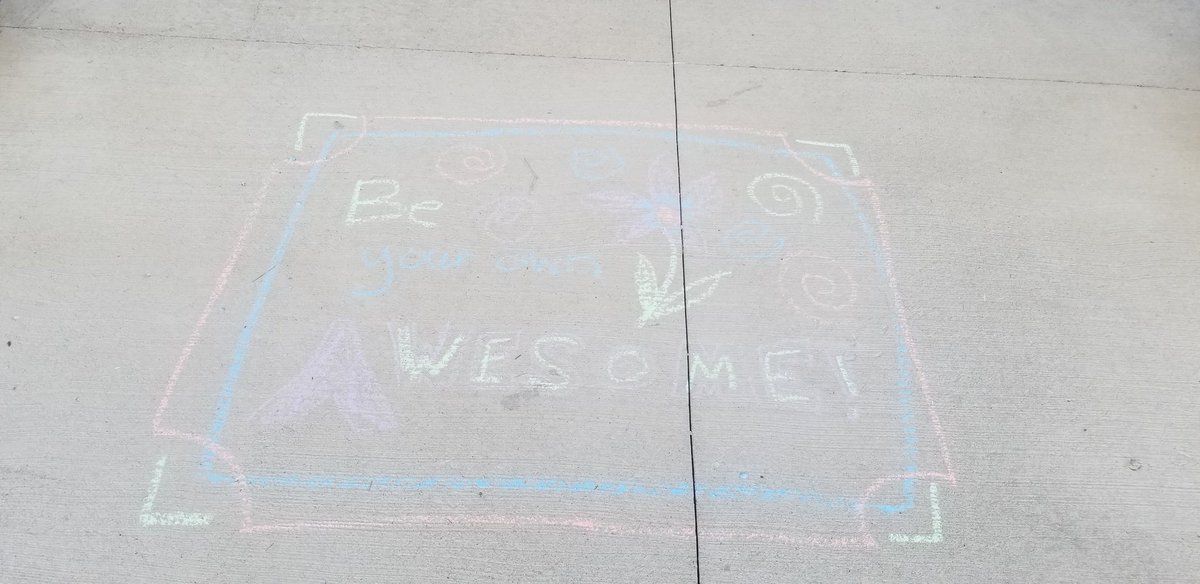 Be
your own
AWESOME!